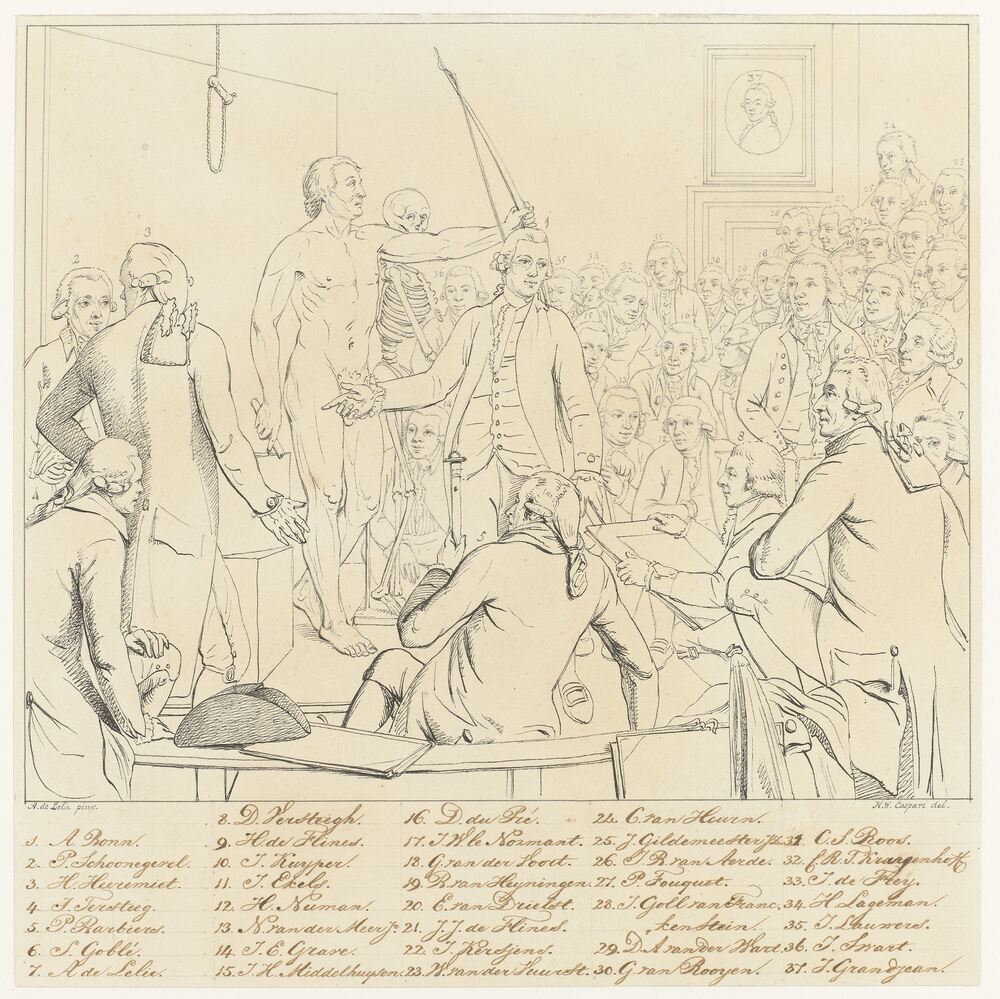 A. de Lelie pinx.
H.W. Caspari del.
1. A. Bonn.
2. P. Schoonegevel.
3. H. Heeremiet.
4. J. Tersteeg.
5. P. Barbiers.
6. S. Goblé.
7. A. de Lelie.
8. D. Versteegh.
9. H. de Flines.
10. J. Kuyper.
11. J. Ekels.
12. H. Numan.
13. N. van der Meer Jr.
14. J. E. Grave.
15. J. H. Middelhuysen.
16. D. du Pré.
17. J. W. le Normant.
18. G. van der Voort.
19. R. van Heyningen.
20. E. van Drielst.
21. J. J. de Flines.
22. J. Kerstjens.
23. W. van der Vuurst.
24. C. van Heurn.
25. J. Gildemeester Jz.
26. J. R. van Aerde.
27. P. Fouquet.
28. J. Goll van Franc,
kenstein.
29. D. A. van der Wart.
30. G. van Rooyen.
31 C. S. Roos.
32. C. R. T. Krayenhoff
33. J. de Frey.
34. H. Lageman.
35. J. Lauwers.
36. J. Swart.
37. J. Grandjean.